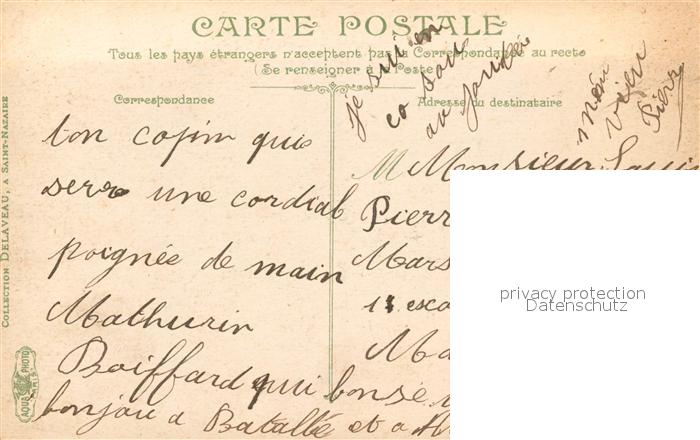 CARTE POSTALE
Tous les pays étrangers n'acceptent pas la Correspondance au recto
(Se renseigner à la Poste)
Correspondance
Adresse du destinataire
Collection DELAVEAU, A SAINT-NAZAIRE
AQUA PHOTO
PARIS
je suis en
co
au
mon
vieu
Pierr
ton copin qui
serre une cordial
poignée de main
Mathurin
Boiffard qui
bonjou a Batallé et a
M Monsieur Louis
Pierr
Mars
11 esca
Ma
privacy protection
Datenschutz